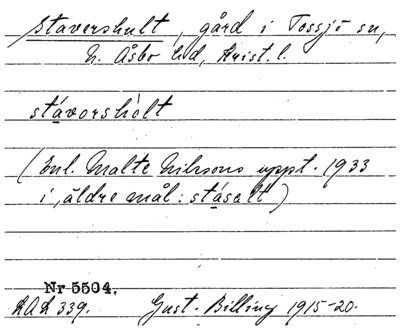 Stavershult, gård i Tossjö sn,
N. Åsbo hd, Krist. l.
stávorshòlt
(Enl. Malte Nilssons uppt. 1933
i äldre mål: stásalt)
Nr 5504.
LAL 339. Gust. Billing 1915-20.